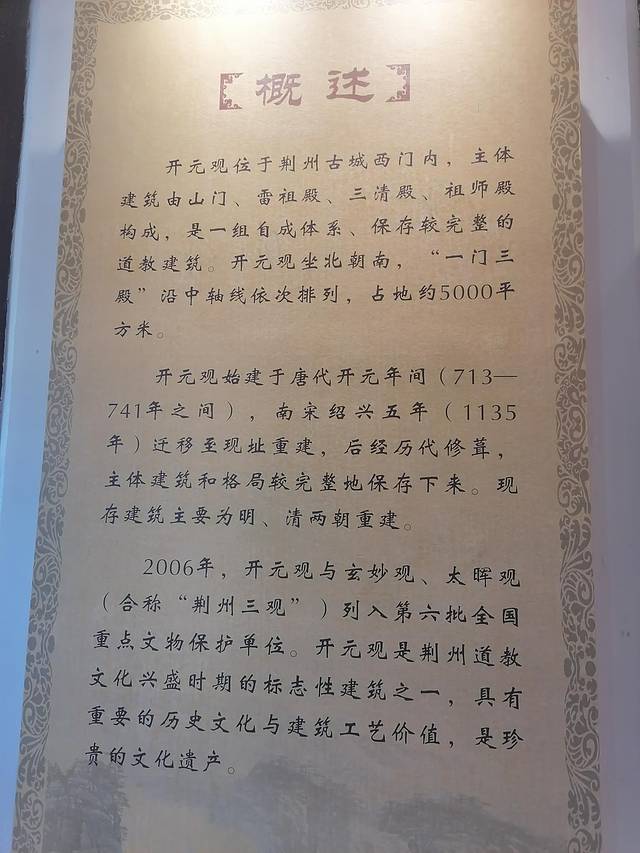 概述
开元观位于荆州古城西门内，主体
建筑由山门、雷祖殿、三清殿、祖师殿
构成，是一组自成体系、保存较完整的
道教建筑。开元观坐北朝南，“一门三
殿”沿中轴线依次排列，占地约5000平
方米。
开元观始建于唐代开元年间（713—
741年之间），南宋绍兴五年（1135
年）迁移至现址重建，后经历代修葺，
主体建筑和格局较完整地保存下来。现
存建筑主要为明、清两朝重建。
2006年，开元观与玄妙观、太晖观
（合称“荆州三观”）列入第六批全国
重点文物保护单位。开元观是荆州道教
文化兴盛时期的标志性建筑之一，具有
重要的历史文化与建筑工艺价值，是珍
贵的文化遗产。